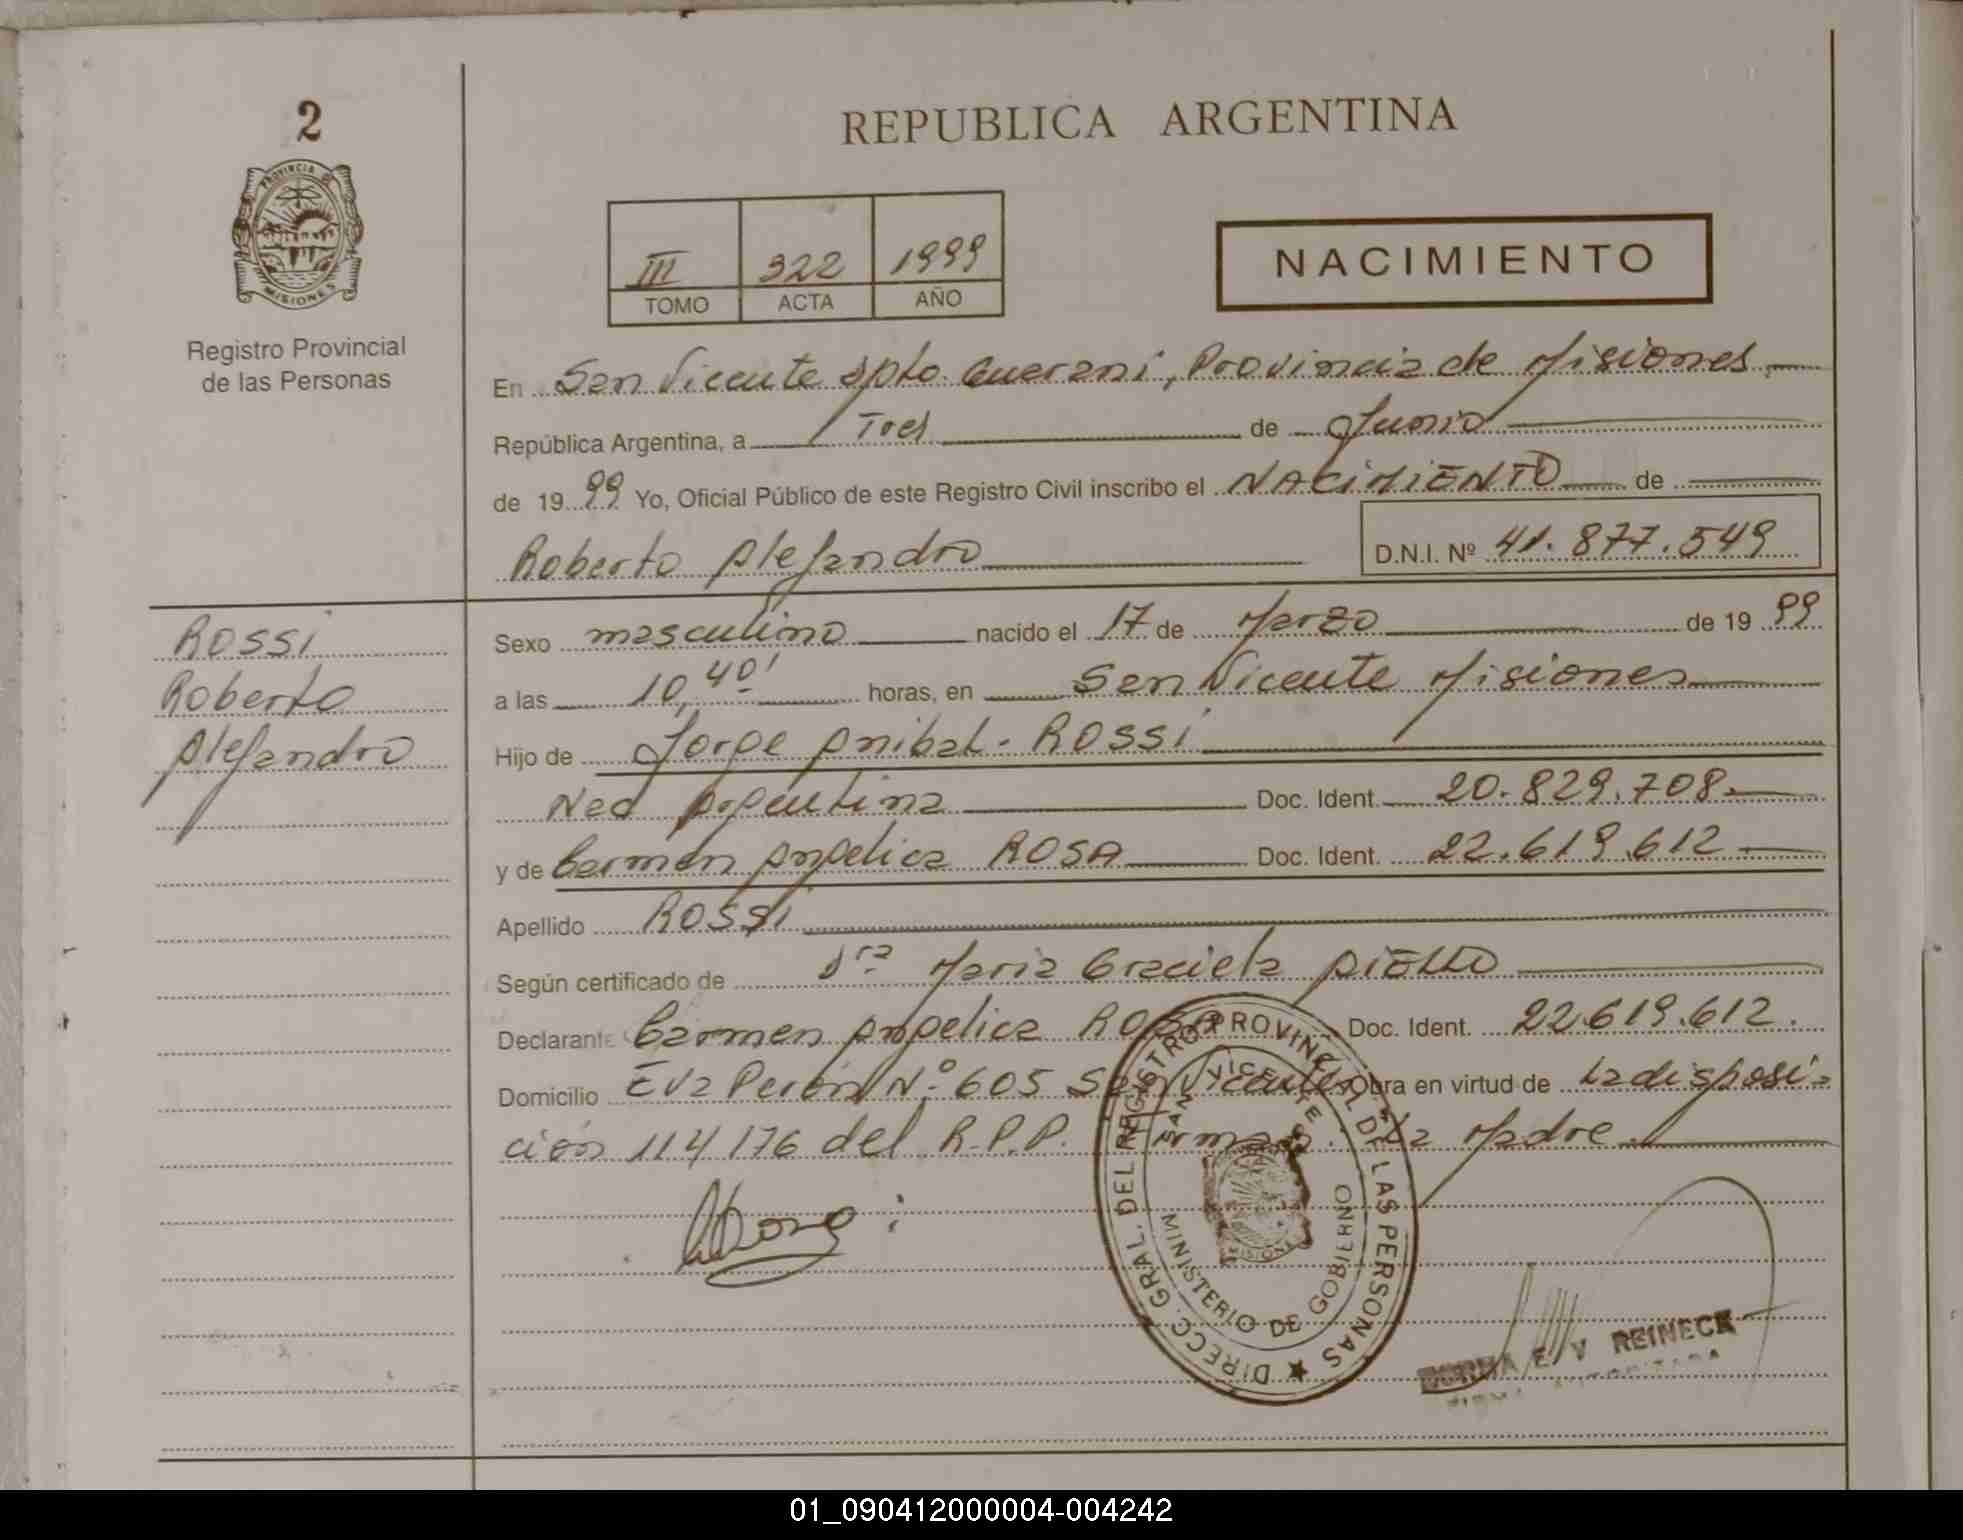 2
PROVINCIA DE
MISIONES
Registro Provincial
de las Personas
REPUBLICA ARGENTINA
III 322 1999
TOMO ACTA AÑO
NACIMIENTO
En San Vicente Dpto. Guarani, Provincia de Misiones
República Argentina, a Tres de Junio
de 1999 Yo, Oficial Público de este Registro Civil inscribo el NACIMIENTO de
Roberto Alejandro D.N.I. Nº 41.877.549
ROSSI
Roberto
Alejandro
Sexo masculino nacido el 17 de Marzo de 1999
a las 10,40' horas, en San Vicente Misiones
Hijo de Jorge Anibal - ROSSI
Nac Argentina Doc. Ident. 20.829.708.
y de Carmen Angelica ROSA Doc. Ident. 22.619.612
Apellido ROSSI
Según certificado de Dra Maria Graciela
Declarante Carmen Angelica ROSA Doc. Ident. 22.619.612.
Domicilio Eva Perón Nº 605 San Vicente Obra en virtud de La disposi
ción 114/76 del R.P.P. Firman: La Madre.
DIRECC. GRAL. DEL REGISTRO PROVINCIAL DE LAS PERSONAS
SAN VICENTE
MINISTERIO DE GOBIERNO
MISIONES
E. V REINECK
01_090412000004-004242